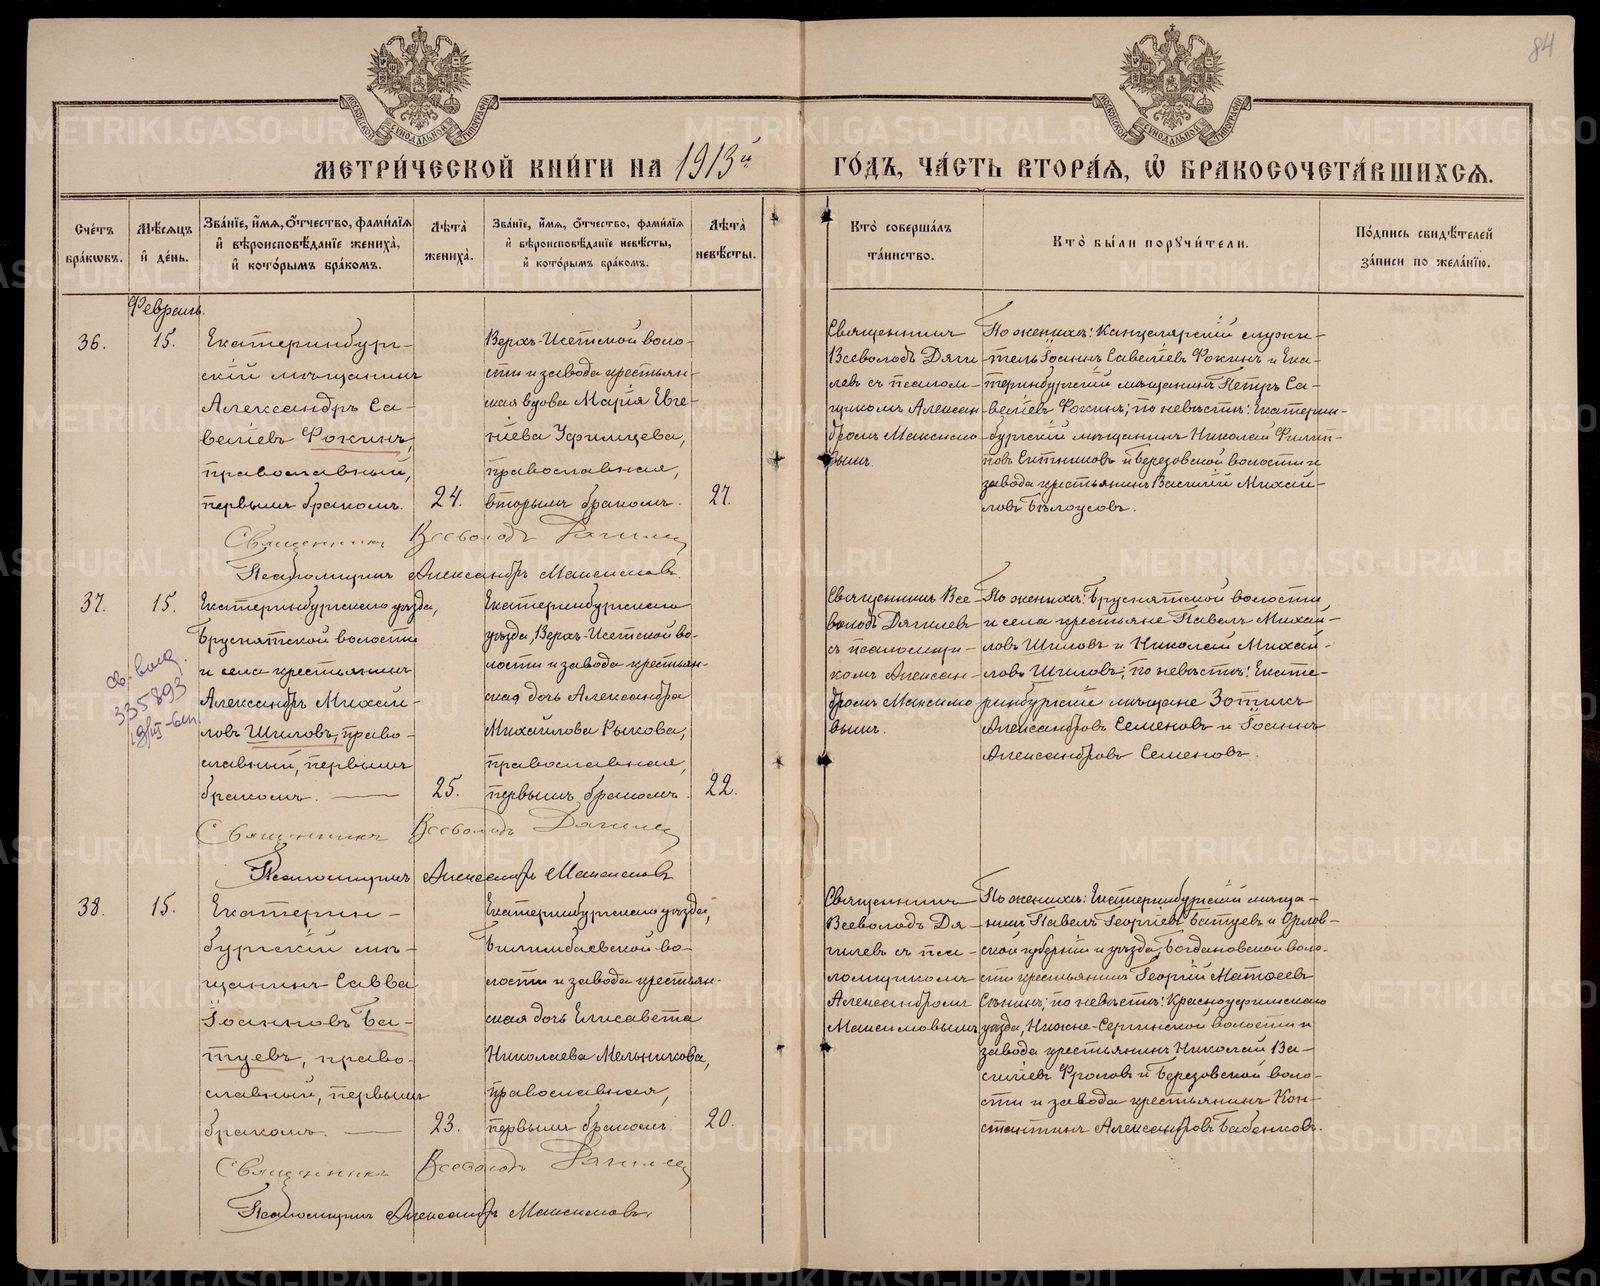 84
МЕТРИ́ЧЕСКОЙ КНИ́ГИ НА 1913й ГО́ДЪ, ЧА́СТЬ ВТОРА́Я, Ѡ БРАКОСОЧЕТА́ВШИХСЯ.
Сче́тъ бра́кѡвъ.
Мѣ́сяцъ и҆ де́нь.
Зва́нїе, и҆́мя, ѻ҆́тчество, фами́лїя и҆ вѣроисповѣ́данїе жениха̀, и҆ кото́рымъ бра́комъ.
Лѣ́та жениха̀.
Зва́нїе, и҆́мя, ѻ҆́тчество, фами́лїя и҆ вѣроисповѣ́данїе невѣ́сты, и҆ кото́рымъ бра́комъ.
Лѣ́та невѣ́сты.
Кто̀ соверша́лъ та́инство.
Кто̀ бы́ли порꙋчи́тели.
По́дпись свидѣ́телей за́писи по жела́нїю.
Февраль.
36.
15.
Екатеринбург-
скій мѣщанинъ
Александръ Са-
веліевъ Фокинъ,
православный,
первымъ бракомъ.
24.
Верхъ-Исетской воло-
сти и завода крестьян-
ская вдова Марія Евге-
ніева Уфимцева,
православная,
вторымъ бракомъ.
27.
Священникъ
Всеволодъ Дяги-
левъ съ псалом-
щикомъ Алексан
дромъ Максимо
вымъ.
По женихѣ: Канцелярскій служи-
тель Іоаннъ Савеліевъ Фокинъ и Ека-
теринбургскій мѣщанинъ Петръ Са-
веліевъ Фокинъ; по невѣстѣ: Екатерин-
бургскій мѣщанинъ Николай Филип-
повъ Ситниковъ и Березовской волости и
завода крестьянинъ Василій Михай-
ловъ Бѣлоусовъ.
Священникъ Всеволодъ Дягилев
Псаломщикъ Александръ Максимовъ.
37.
15.
Екатеринбургскаго уѣзда,
Бруснятской волости
и села крестьянинъ
Александръ Михай-
ловъ Шиловъ, право-
славный, первымъ
бракомъ.
25.
св. выд.
335893
Екатеринбургскаго
уѣзда, Верхъ-Исетской во-
лости и завода крестьян-
ская дочь Александра
Михайлова Рыкова,
православная,
первымъ бракомъ.
22.
Священникъ Все-
володъ Дягилевъ
съ псаломщи-
комъ Алексан-
дромъ Максимо
вымъ.
По женихѣ: Бруснятской волости
и села крестьяне Павелъ Михай-
ловъ Шиловъ и Николай Михай-
ловъ Шиловъ; по невѣстѣ: Екате-
ринбургскіе мѣщане Зотикъ
Александровъ Семеновъ и Іоаннъ
Александровъ Семеновъ.
Священникъ Всеволодъ Дягилев
Псаломщикъ Александръ Максимовъ
38.
15.
Екатерин-
бургскій мѣ-
щанинъ Савва
Іоанновъ Ба-
туевъ, право-
славный, первымъ
бракомъ.
23.
Екатеринбургскаго уѣзда,
Билимбаевской во-
лости и завода крестьян-
ская дочь Елисавета
Николаева Мельникова,
православная,
первымъ бракомъ.
20.
Священникъ
Всеволодъ Дя-
гилевъ съ пса-
ломщикомъ
Александромъ
Максимовымъ
По женихѣ: Екатеринбургскій мѣща-
нинъ Павелъ Георгіевъ Батуевъ и Орлов-
ской губерніи и уѣзда, Богдановской воло-
сти крестьянинъ Георгій Матѳеевъ
Сѣнинъ; по невѣстѣ: Красноуфимскаго
уѣзда, Нижне-Сергинской волости и
завода крестьянинъ Николай Ва-
силіевъ Фроловъ и Березовской воло-
сти и завода крестьянинъ Кон-
стантинъ Александровъ Бабенковъ.
Священникъ Всеволодъ Дягилев
Псаломщикъ Александръ Максимовъ.
METRIKI.GASO-URAL.RU